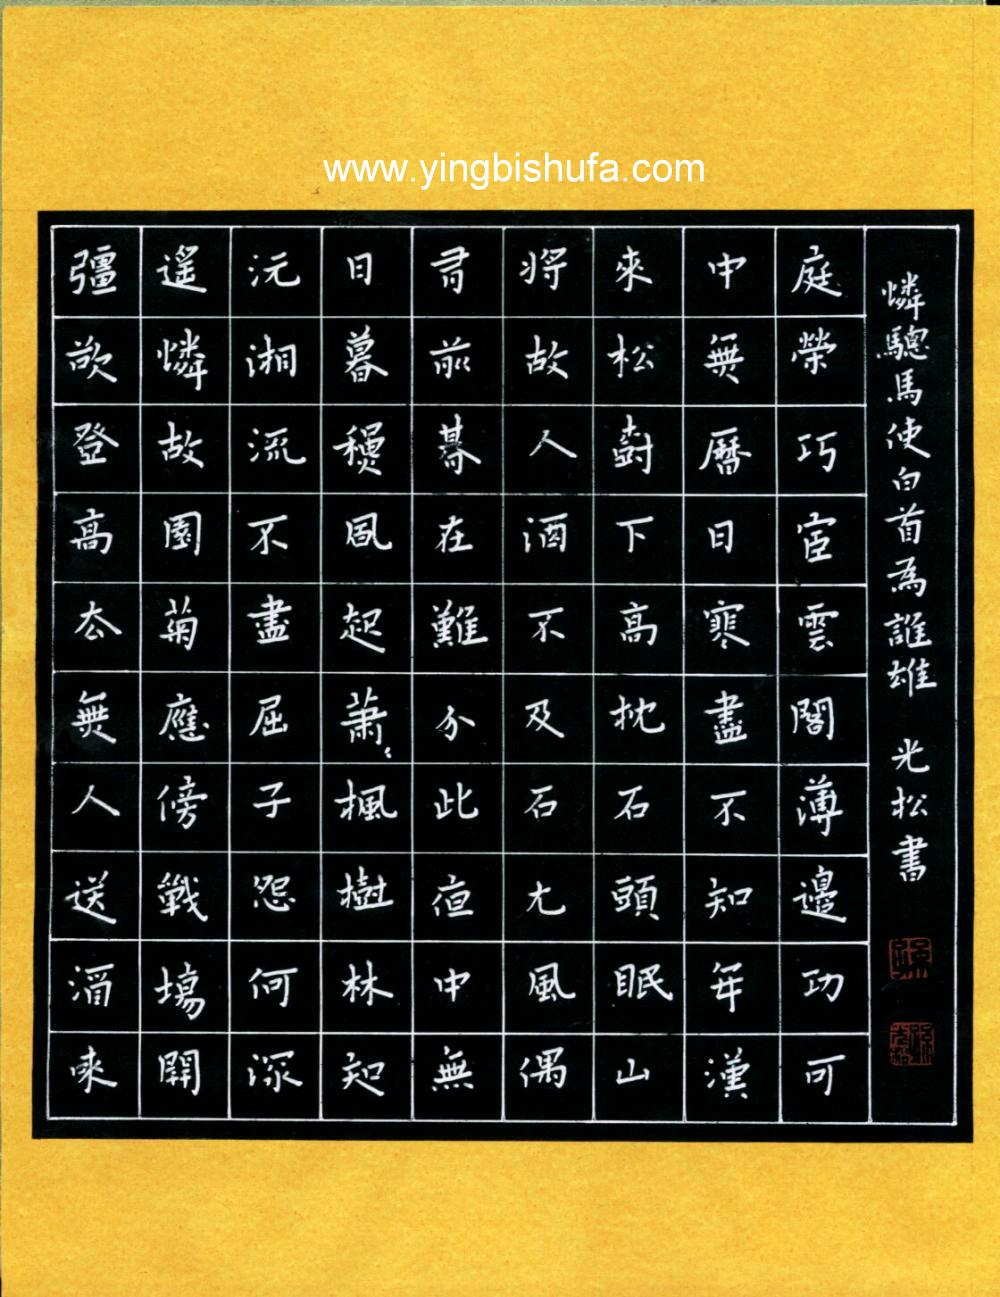 www.yingbishufa.com
彊欲登高去無人送酒來
遙憐故園菊應傍戰場開
沅湘流不盡屈子怨何深
日暮穐風起蕭〻楓樹林知
有前期在難分此夜中無
將故人酒不及石尤風偶
來松樹下高枕石頭眠山
中無曆日寒盡不知年漢
庭榮巧宦雲閣薄邊功可
憐驄馬使白首為誰雄 光松書